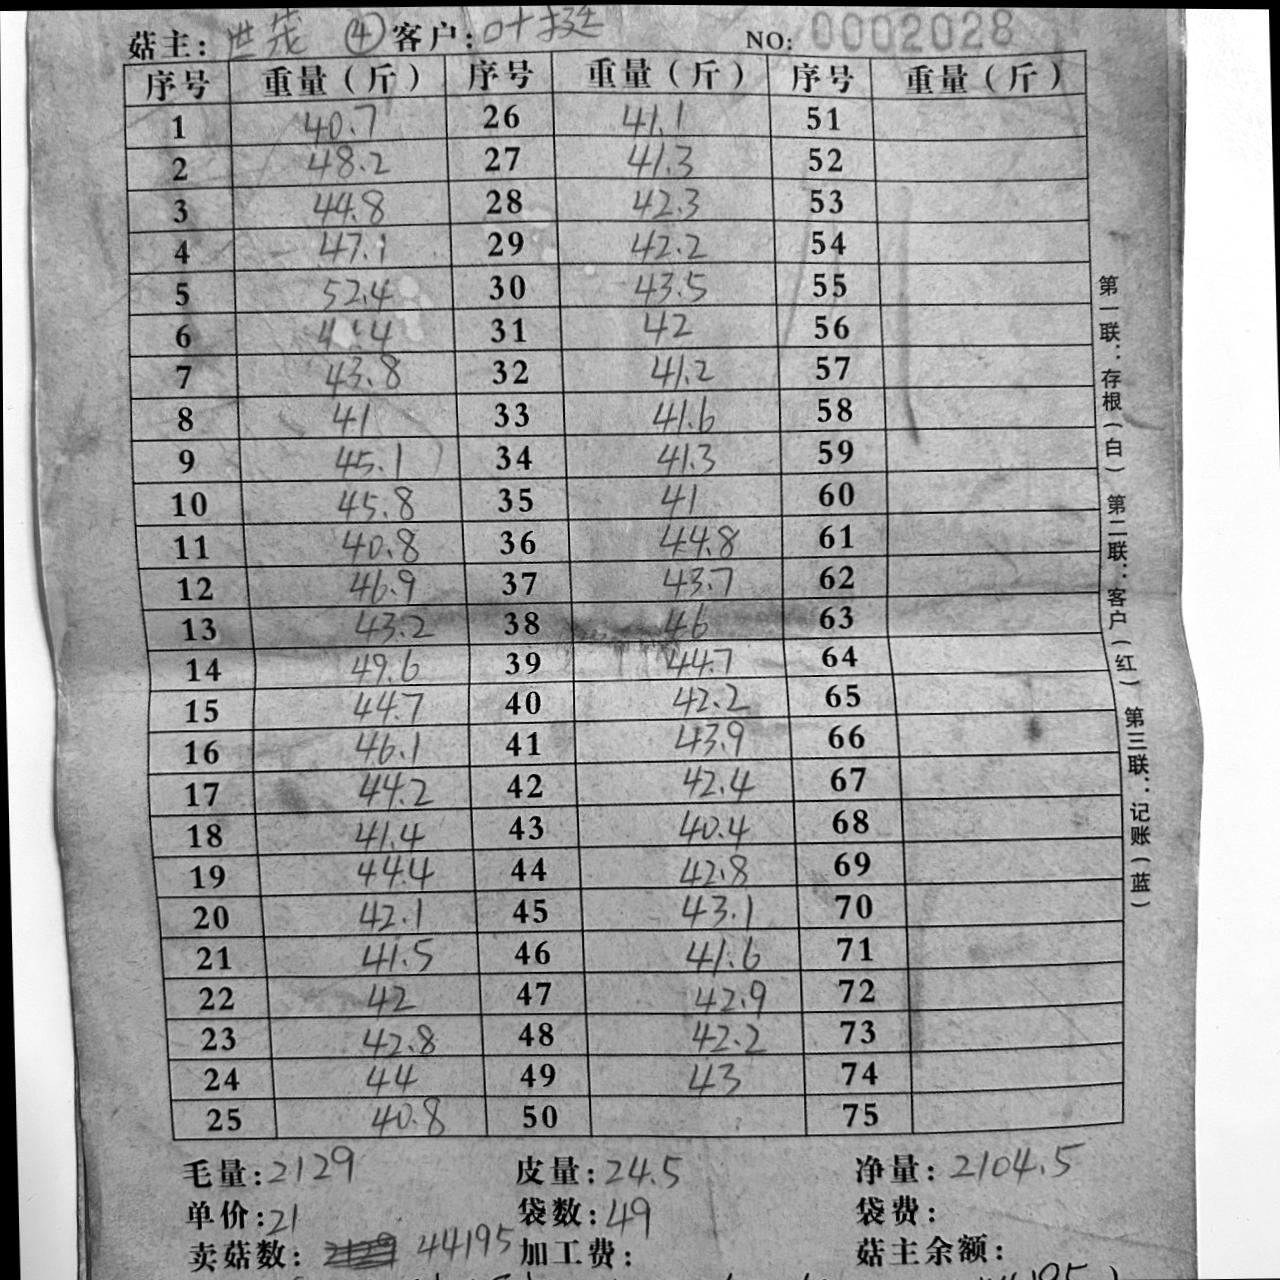 菇主: 世茂 ④ 客户: 叶挺 NO: 0002028
序号 重量(斤) 序号 重量(斤) 序号 重量(斤)
1 40.7 26 41.1 51
2 48.2 27 41.3 52
3 44.8 28 42.3 53
4 47.1 29 42.2 54
5 52.4 30 43.5 55
6 44.4 31 42 56
7 43.8 32 41.2 57
8 41 33 41.6 58
9 45.1 34 41.3 59
10 45.8 35 41 60
11 40.8 36 44.8 61
12 46.9 37 43.7 62
13 43.2 38 46 63
14 49.6 39 44.7 64
15 44.7 40 42.2 65
16 46.1 41 43.9 66
17 44.2 42 42.4 67
18 41.4 43 40.4 68
19 44.4 44 42.8 69
20 42.1 45 43.1 70
21 41.5 46 41.6 71
22 42 47 42.9 72
23 42.8 48 42.2 73
24 44 49 43 74
25 40.8 50 75
毛量: 2129 皮量: 24.5 净量: 2104.5
单价: 21 袋数: 49 袋费:
卖菇数: 44195 加工费: 菇主余额:
第一联:存根(白) 第二联:客户(红) 第三联:记账(蓝)